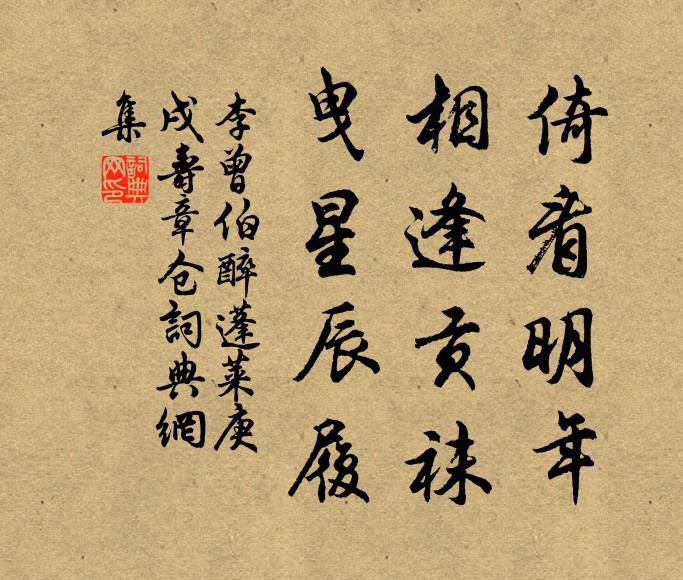 倚看明年
相逢贡袜
曳星辰履
李曾伯醉蓬莱庚
戌壽章仓詞典網
集
詞典
网印